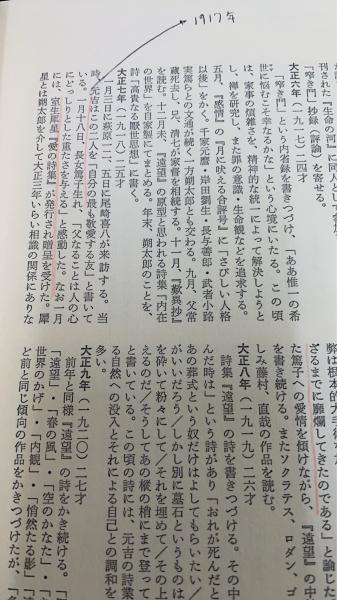 1917年
刊された『生命の河』に同人として参
「窄き門」抄録（評論）を寄せる。
大正六年（一九一七）二四才
「窄き門」という内省録を書きつけ、「ああ惟一の希
世に悩むこそ幸なるかな」という心境にいたる。この頃
は、家事の煩雑さを、精神的な統一によって解決しようと
し、禅を研究し、また罪の意識・生命観などを追求する。
五月、『感情』の「月に吠える合評号」に「さびしい人格
以後」をかく。千家元麿・岸田劉生・長与善郎・武者小路
実篤らとの文通が続く一方朔太郎とも交わる。九月、父常
蔵死去し、兄、清七が家督を相続する。十一月、『歎異抄』
を読む。十二月末、『遠望』の原型と思われる詩集『内在
の世界』を自家製にてまとめる。年末、朔太郎のことを、
詩「高貴なる厭世思想」に書く。
大正七年（一九一八）二五才
一月三日に萩原
五日に尾崎喜八が来訪する。当
時、元吉はこの二人を「自分の最も敬愛する友」と書いて
いる。一月十八日、長女篤子生れ、「父なることは人の心
にどっしりとした重たさを与える」と感動した。なお一月
には、室生犀星『愛の詩集』が発行され贈呈を受けた。犀
星とは朔太郎を介して大正三年いらい相識の関係にありな
弊は根本的大手術を
ざるまでに靡爛してきたのである」と論じた
た篤子への愛情を傾けながら、『遠望』の中
を書き続ける。またソクラテス、ロダン、ゴ
しみ藤村、直哉の作品を読む。
大正八年（一九一九）二六才
詩集『遠望』の詩を書きつづける。その中
んだ時は」という詩があり「おれが死んだと
あの葬式という奴だけはよしてもらいたい／
がいいだろう／しかし別に墓石というものは
を砕いて粉々にして／それを埋めて／その上
えるのだ／そうしてあの樅の梢にまで登って
と書いている。この頃の詩には、元吉の詩業
る自然への没入とそれによる自己との調和を
多い。
大正九年（一九二〇）二七才
前年と同様『遠望』の詩をかき続ける。「
「遠望」・「春の風」・「空のかなた」・「
世界のかげ」・「内観」・「悄然たる影」・
ど前と同じ傾向の作品をかきつづけたが、「